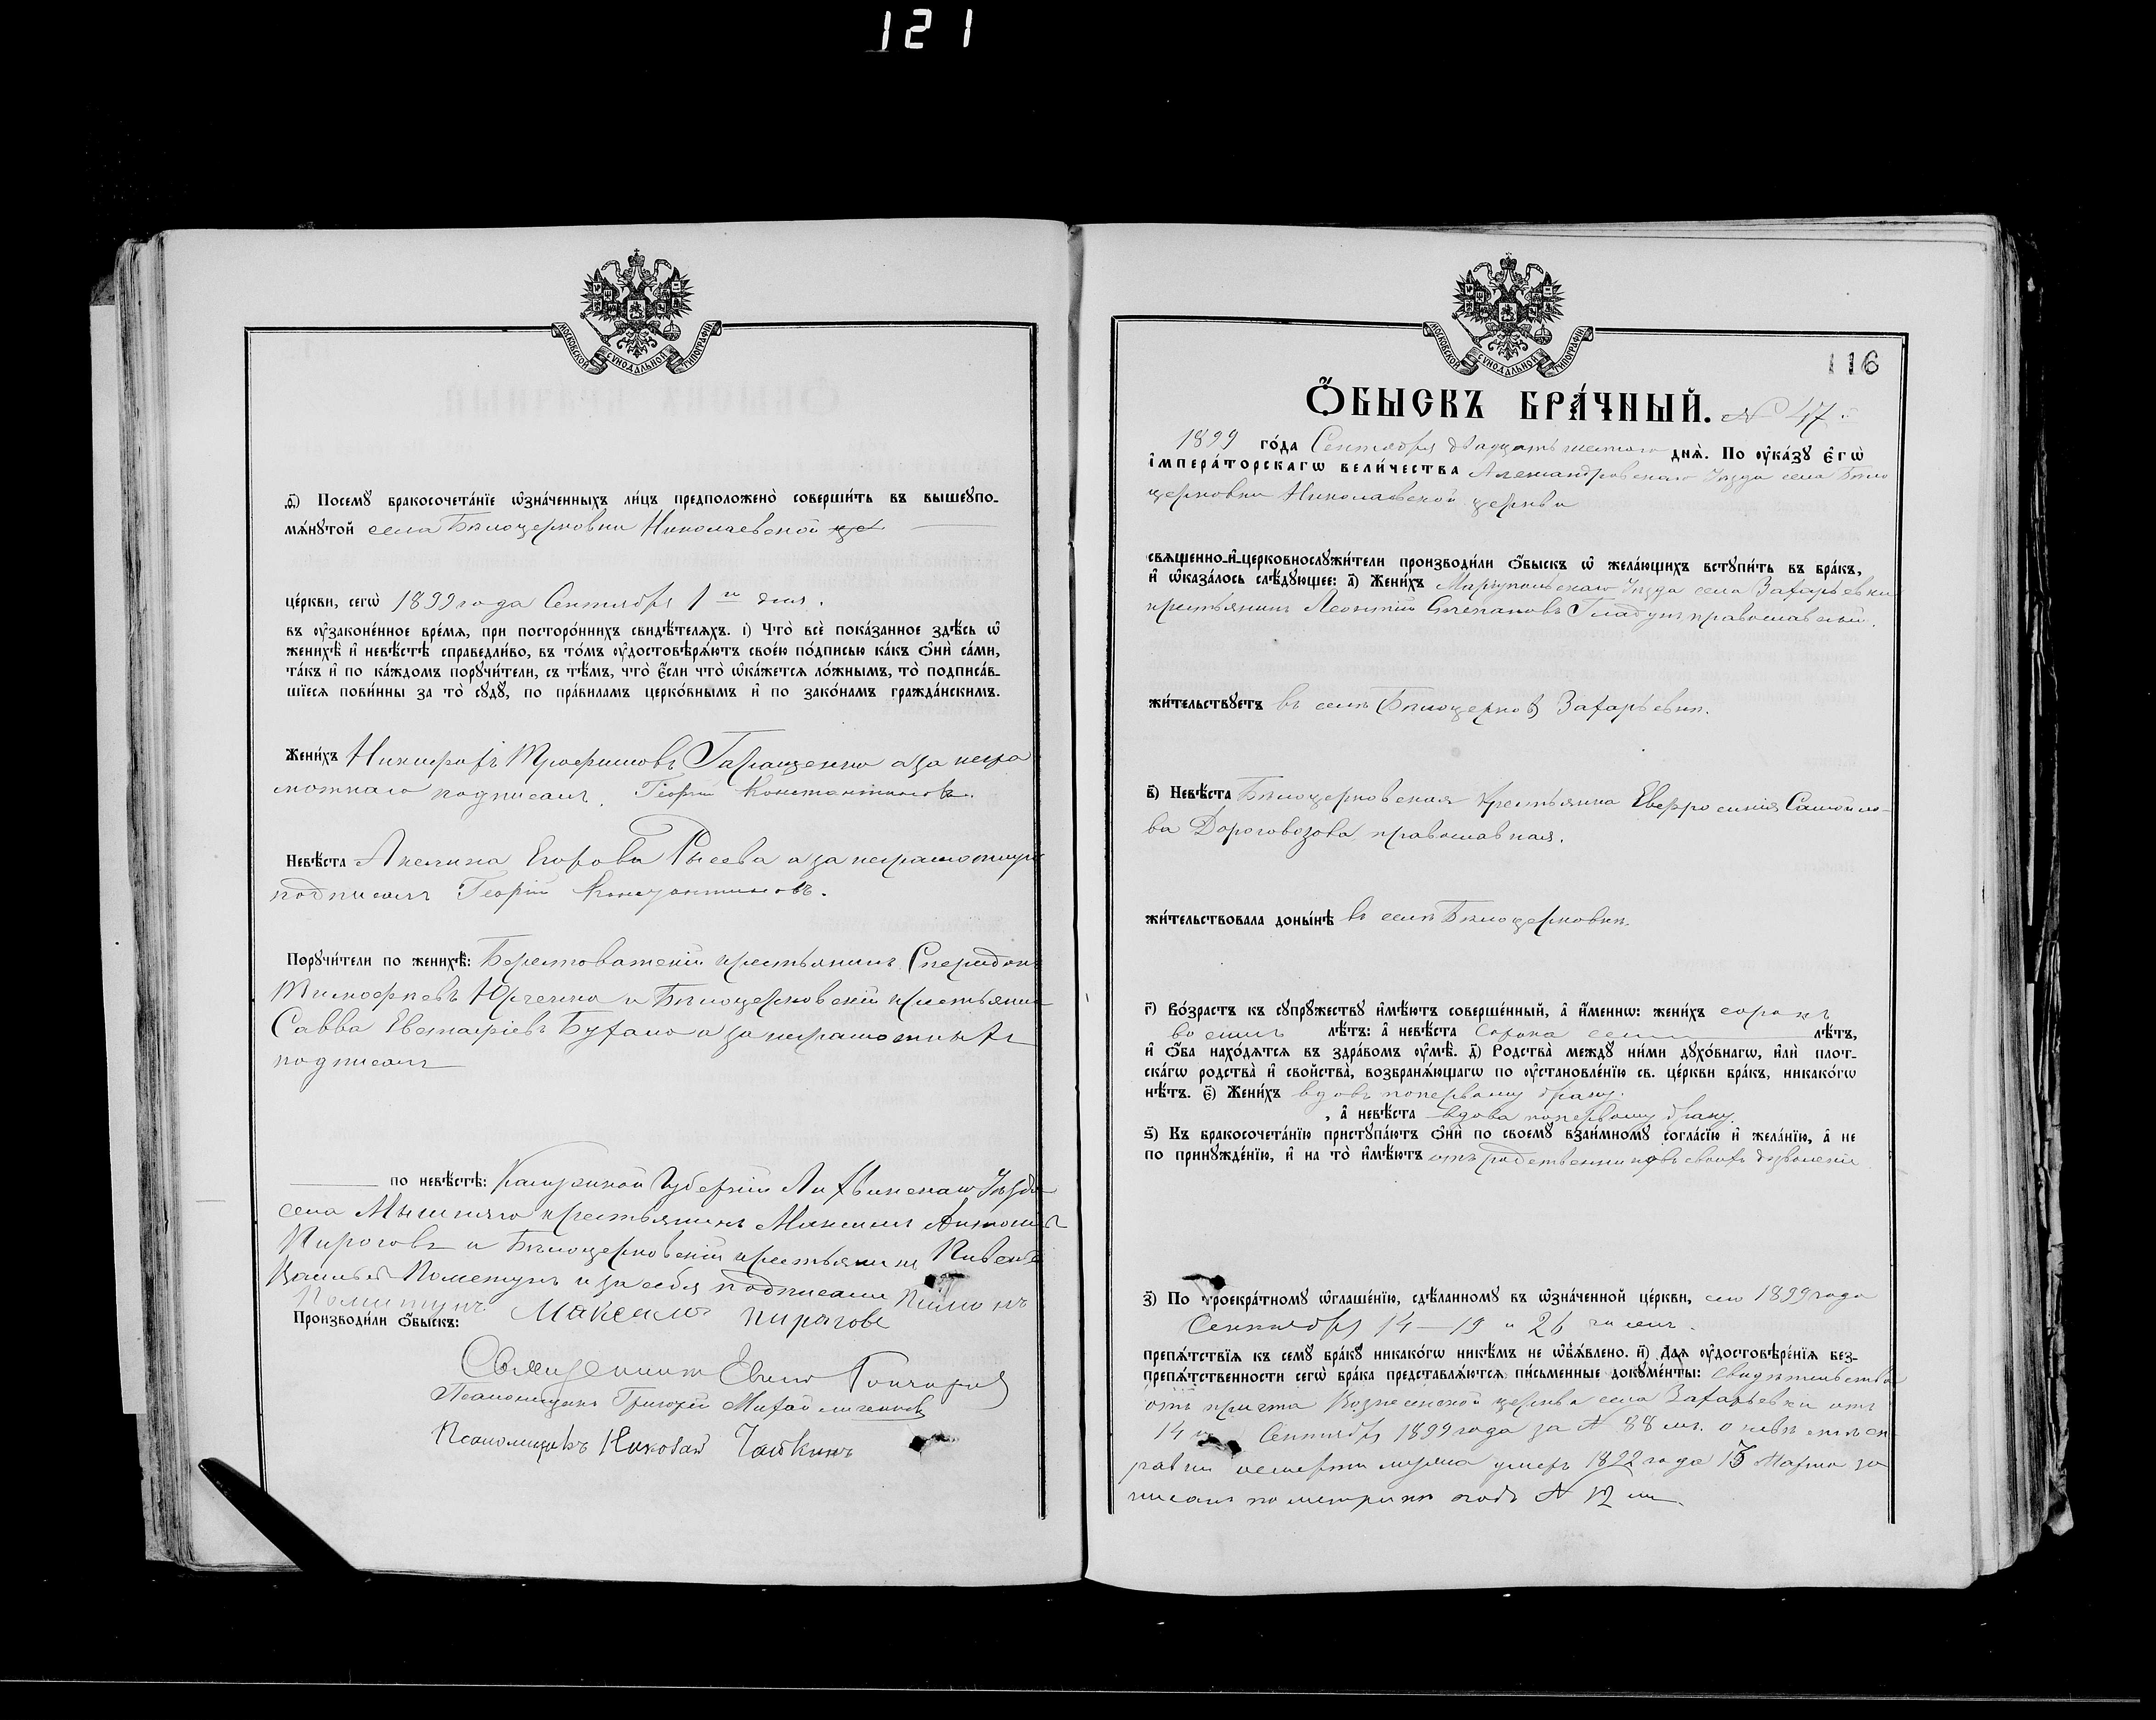 121
МОСКОВСКОЙ СѴНОДАЛЬНОЙ ТИПОГРАФІИ
д҃) Посемꙋ бракосочета́нїе ѡ҆зна́ченныхъ ли́цъ предположено̀ соверши́ть въ вышеꙋпо-
мѧ́нꙋтой села Бѣлоцерковки Николаевской
це́ркви, сегѡ̀ 1899 года Сентября 1 го дня.
въ оу҆зако́нённое вре́мѧ, при посторо́ннихъ свидѣ́телѧхъ. і) Что̀ всѐ пока́занное здѣ́сь ѡ҆
женихѣ̀ и҆ невѣ́стѣ справедли́во, въ то́мъ оу҆достовѣрѧ́ютъ свое́ю по́дписью ка́къ ѻ҆нѝ са́ми,
та́къ и҆ по ка́ждомъ порꙋчи́тели, съ тѣ́мъ, что̀ є҆́сли что̀ ѡ҆ка́жетсѧ ло́жнымъ, то̀ подписа́в-
шїесѧ пови́нны за то̀ сꙋдꙋ̀, по пра́виламъ церко́внымъ и҆ по зако́намъ гражда́нскимъ.
Жени́хъ Никифоръ Трофимовъ Геращенко а за негра
мотнаго подписалъ Георгій Константиновъ.
Невѣ́ста Акелина Егорова Рысева а за неграмотную
подписалъ Георгій Константиновъ.
Порꙋчи́тели по женихѣ̀: Берестоватскій крестьянинъ Спиридонъ
Тимофеевъ Юрченко и Бѣлоцерковскій крестьянинъ
Савва Евстафіевъ Бухало а за неграмотныхъ
подписалъ
по невѣ́стѣ: Калужской Губерніи Лихвинскаго Уѣзда
села Мышняго крестьянинъ Максимъ Антоновъ
Пироговъ и Бѣлоцерковскій крестьянинъ
Пометунъ и за себя подписали
Произвoди́ли ѻ҆́быскъ: Максимъ Пироговъ
Священникъ Гончаровъ
Псаломщикъ Григорій Михайличенковъ
Псаломщикъ Николай Чайкинъ
МОСКОВСКОЙ СѴНОДАЛЬНОЙ ТИПОГРАФІИ
116
Ѻ҆́БЫСКЪ БРА́ЧНЫЙ. № 47.
1899 го́да Сентября двадцать шестого днѧ̀. По оу҆ка́зꙋ є҆гѡ̀
і҆мпера́торскагѡ вели́чества Александровскаго Уѣзда села Бѣло
церковки Николаевской церкви
свѧщенно-и҆-церковнослꙋжи́тели производи́ли ѻ҆́быскъ ѡ҆ жела́ющихъ встꙋпи́ть въ бра́къ,
и҆ ѡ҆каза́лось слѣ́дꙋющее: а҃) Жени́хъ Маріупольскаго Уѣзда села Захарьевки
крестьянинъ Леонтій Степановъ Гладунъ православный.
жи́тельствꙋетъ въ селѣ (Бѣлоцерков) Захарьевкѣ.
в҃) Невѣ́ста Бѣлоцерковская крестьянка Евфросинія Самойло-
ва Дороговозова, православная.
жи́тельствовала доны́нѣ въ селѣ Бѣлоцерковкѣ.
г҃) Во́зрастъ къ сꙋпрꙋ́жествꙋ и҆мѣ́ютъ соверше́нный, а҆ и҆́меннѡ: жени́хъ сорокъ
восемь лѣ́тъ: а҆ невѣ́ста сорока семи лѣ́тъ,
и҆ ѻ҆́ба нахо́дѧтсѧ въ здра́вомъ оу҆мѣ̀. д҃) Родства̀ междꙋ̀ ни́ми дꙋхо́внагѡ, и҆лѝ плот-
ска́гѡ родства̀ и҆ свойства̀, возбранѧ́ющагѡ по оу҆становле́нїю св. це́ркви бра́къ, никако́гѡ
нѣ́тъ. є҃) Жени́хъ вдовъ по первому браку.
, а҆ невѣ́ста вдова по первому браку.
ѕ҃) Къ бракосочета́нїю пристꙋпа́ютъ ѻ҆нѝ по своемꙋ̀ взаи́мномꙋ согла́сїю и҆ жела́нїю, а҆ не
по принꙋжде́нїю, и҆ на то̀ и҆мѣ́ютъ отъ родственниковъ своихъ дозволеніе
з҃) По троекра́тномꙋ ѡ҆глаше́нїю, сдѣ́ланномꙋ въ ѡ҆зна́ченной це́ркви, сего 1899 года
Сентября 14 — 19 и 26 чиселъ.
препѧ́тствїѧ къ семꙋ̀ бра́кꙋ никако́гѡ никѣ́мъ не ѡ҆б̾ѧ́влено. и҃) Длѧ оу҆достовѣре́нїѧ без-
препѧ́тственности сегѡ̀ бра́ка представлѧ́ютсѧ пи́сьменные докꙋме́нты: свидѣтельства
отъ причта Вознесенской церкви села Захарьевки отъ
14 го Сентября 1899 года за № 88 мъ. о невѣстѣ сп
равки о смерти мужа умеръ 1822 года 13 Марта за
писанъ по метрикѣ подъ № 12 мъ.